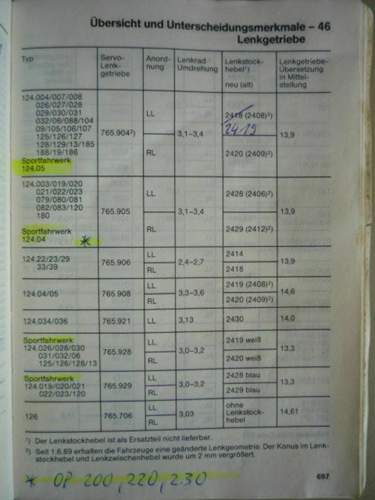 Übersicht und Unterscheidungsmerkmale – 46
Lenkgetriebe
Typ
Servo-
Lenk-
getriebe
Anord-
nung
Lenkrad
Umdrehung
Lenkstock-
hebel¹)
neu (alt)
Lenkgetriebe-
Übersetzung
in Mittel-
stellung
124.004/007/008
026/027/028
029/030/031
032/06/088/104
09/105/106/107
125/126/127
128/129/13/185
188/19/186
Sportfahrwerk
124.05
765.904²)
LL
RL
3,1–3,4
2418 (2408)²)
2419
2420 (2409)²)
13,9
124.003/019/020
021/022/023
079/080/081
082/083/120
180
Sportfahrwerk
124.04 *
765.905
LL
RL
3,1–3,4
2428 (2406)²)
2429 (2412)²)
13,9
124.22/23/29
33/39
765.906
LL
RL
2,4–2,7
2414
2418
13,9
124.04/05
765.908
LL
RL
3,3–3,6
2419 (2408)²)
2420 (2409)²)
14,6
124.034/036
765.921
LL
3,13
2430
14,0
Sportfahrwerk
124.026/028/030
031/032/06
125/126/128/13
765.928
LL
RL
3,0–3,2
2419 weiß
2420 weiß
13,3
Sportfahrwerk
124.019/020/021
022/023/120
765.929
LL
RL
3,0–3,2
2428 blau
2429 blau
13,3
126
765.706
LL
RL
3,03
ohne
Lenkstock-
hebel
14,61
¹) Der Lenkstockhebel ist als Ersatzteil nicht lieferbar.
²) Seit 1.6.89 erhalten die Fahrzeuge eine geänderte Lenkgeometrie. Der Konus im Lenk-
stockhebel und Lenkzwischenhebel wurde um 2 mm vergrößert.
697
* 200, 220, 230